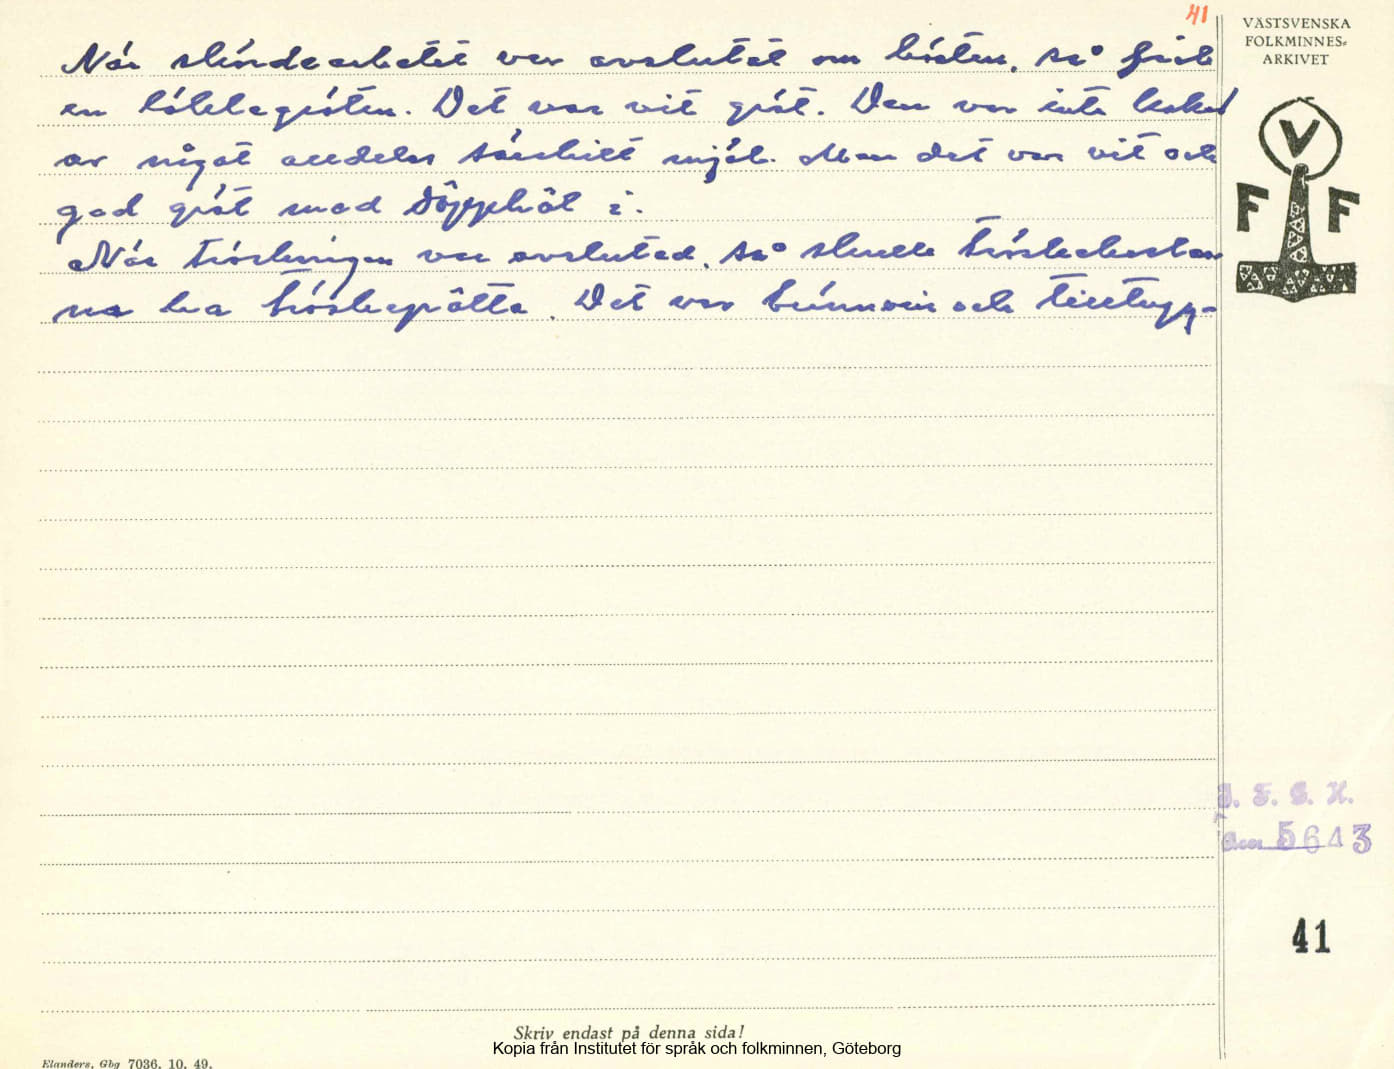 41
VÄSTSVENSKA
FOLKMINNES-
ARKIVET
När skördearbetet var avslutat om hösten, så fick
en gröten. Det var vit gröt. Den var inte kokad
av något alldeles särskilt mjöl. Men det var vit och
god gröt med döpphôt i.
När tröskningen var avslutad, så skulle tröskekarlar
na ha tröskegôtta. Det var brännvin och tilltugg-
V
F F
I. F. G. H.
Acc 5643
41
Skriv endast på denna sida!
Kopia från Institutet för språk och folkminnen, Göteborg
Elanders, Gbg 7036. 10. 49.